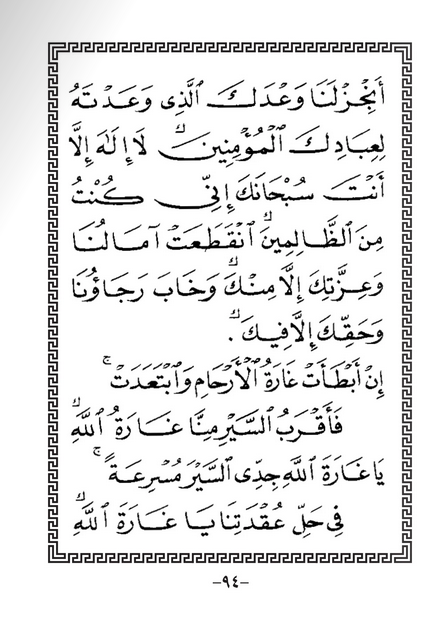 أَنْجِزْ لَنَا وَعْدَكَ الَّذِى وَعَدْتَهُ
لِعِبَادِكَ الْمُؤْمِنِينَ لَا إِلٰهَ إِلَّا
أَنْتَ سُبْحَانَكَ إِنِّى كُنْتُ
مِنَ الظَّالِمِينَ انْقَطَعَتْ آمَالُنَا
وَعِزَّتِكَ إِلَّا مِنْكَ وَخَابَ رَجَاؤُنَا
وَحَقِّكَ إِلَّا فِيكَ .
إِنْ أَبْطَأَتْ غَارَةُ الْأَرْحَامِ وَابْتَعَدَتْ
فَأَقْرَبُ السَّيْرِ مِنَّا غَارَةُ اللّٰهِ
يَا غَارَةَ اللّٰهِ جِدِّى السَّيْرَ مُسْرِعَةً
فِى حَلِّ عُقْدَتِنَا يَا غَارَةَ اللّٰهِ
-٩٤-